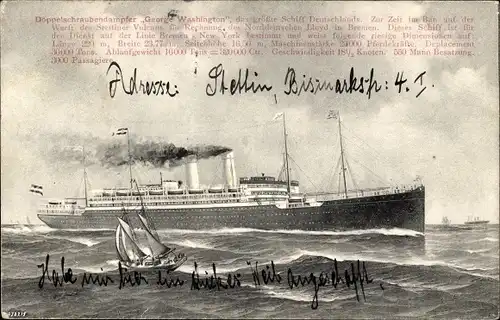 Doppelschraubendampfer „George Washington", das größte Schiff Deutschlands. Zur Zeit im Bau auf der
Werft des Stettiner Vulcans für Rechnung des Norddeutschen Lloyd in Bremen. Dieses Schiff ist für
den Dienst auf der Linie Bremen New York bestimmt und weist folgende riesige Dimensionen auf:
Länge 220 m, Breite 23,77 m, Seitenhöhe 16,50 m, Maschinenstärke 20000 Pferdekräfte. Deplacement
36000 Tons. Ablaufgewicht 16000 Tons = 320000 Ctr. Geschwindigkeit 18½ Knoten. 550 Mann Besatzung.
3000 Passagiere
Adresse: Stettin, Bismarckstr: 4. I.
Habe mir hier ein dickes Weib angeschafft.